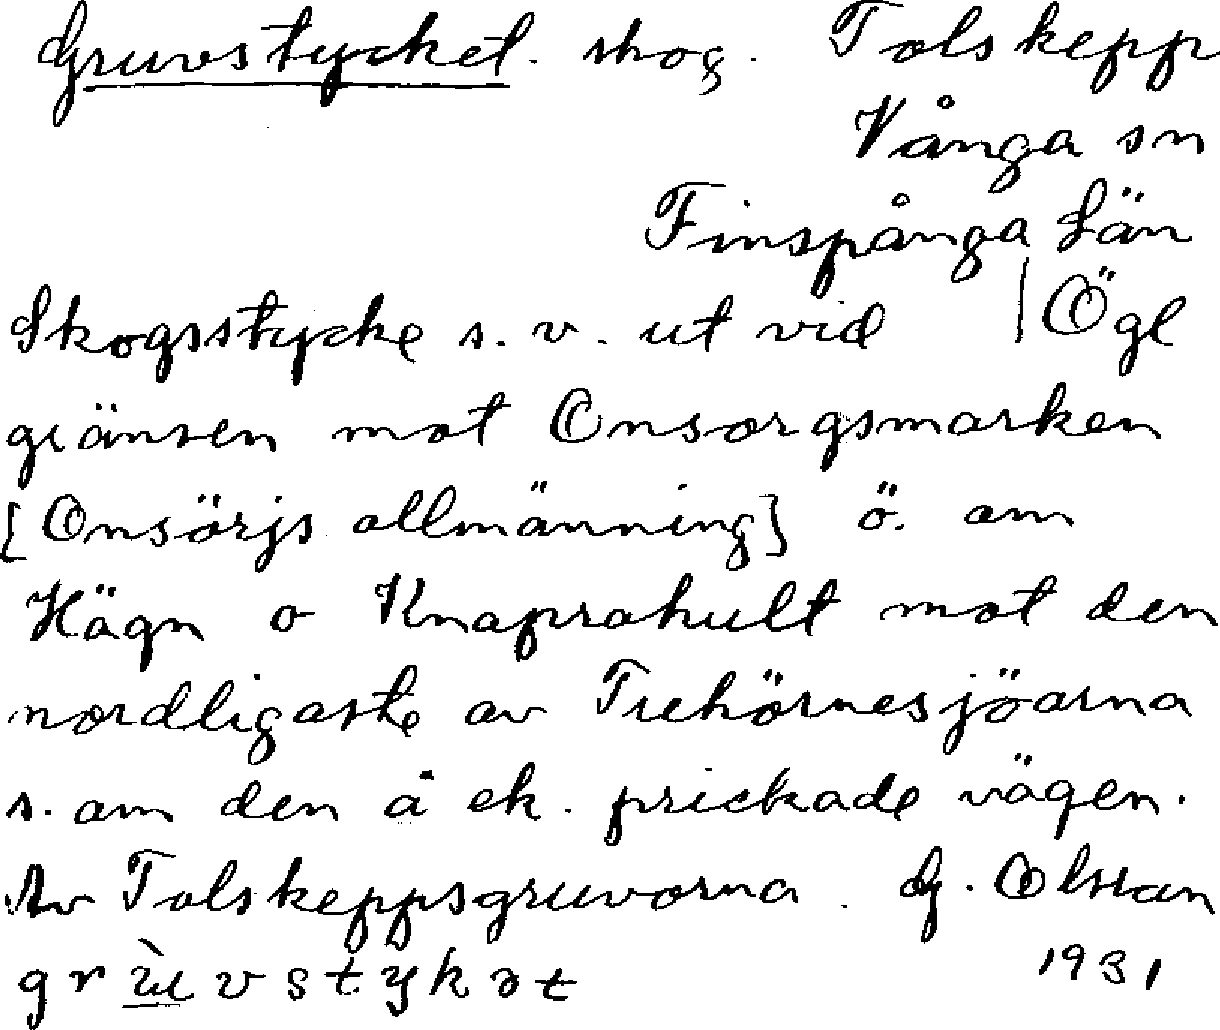 Gruvstycket. skog. Tolskepp
Vånga sn
Finspånga län
Skogsstycke s. v. ut vid | Ögl
gränsen mot Onsorgsmarken
[Onsörjs allmänning] ö. om
Hägn o Knaprahult mot den
nordligaste av Trehörnesjöarna
s. om den å ek. prickade vägen.
Av Tolskeppsgruvorna. G. Olsson
grùvstykət 1931